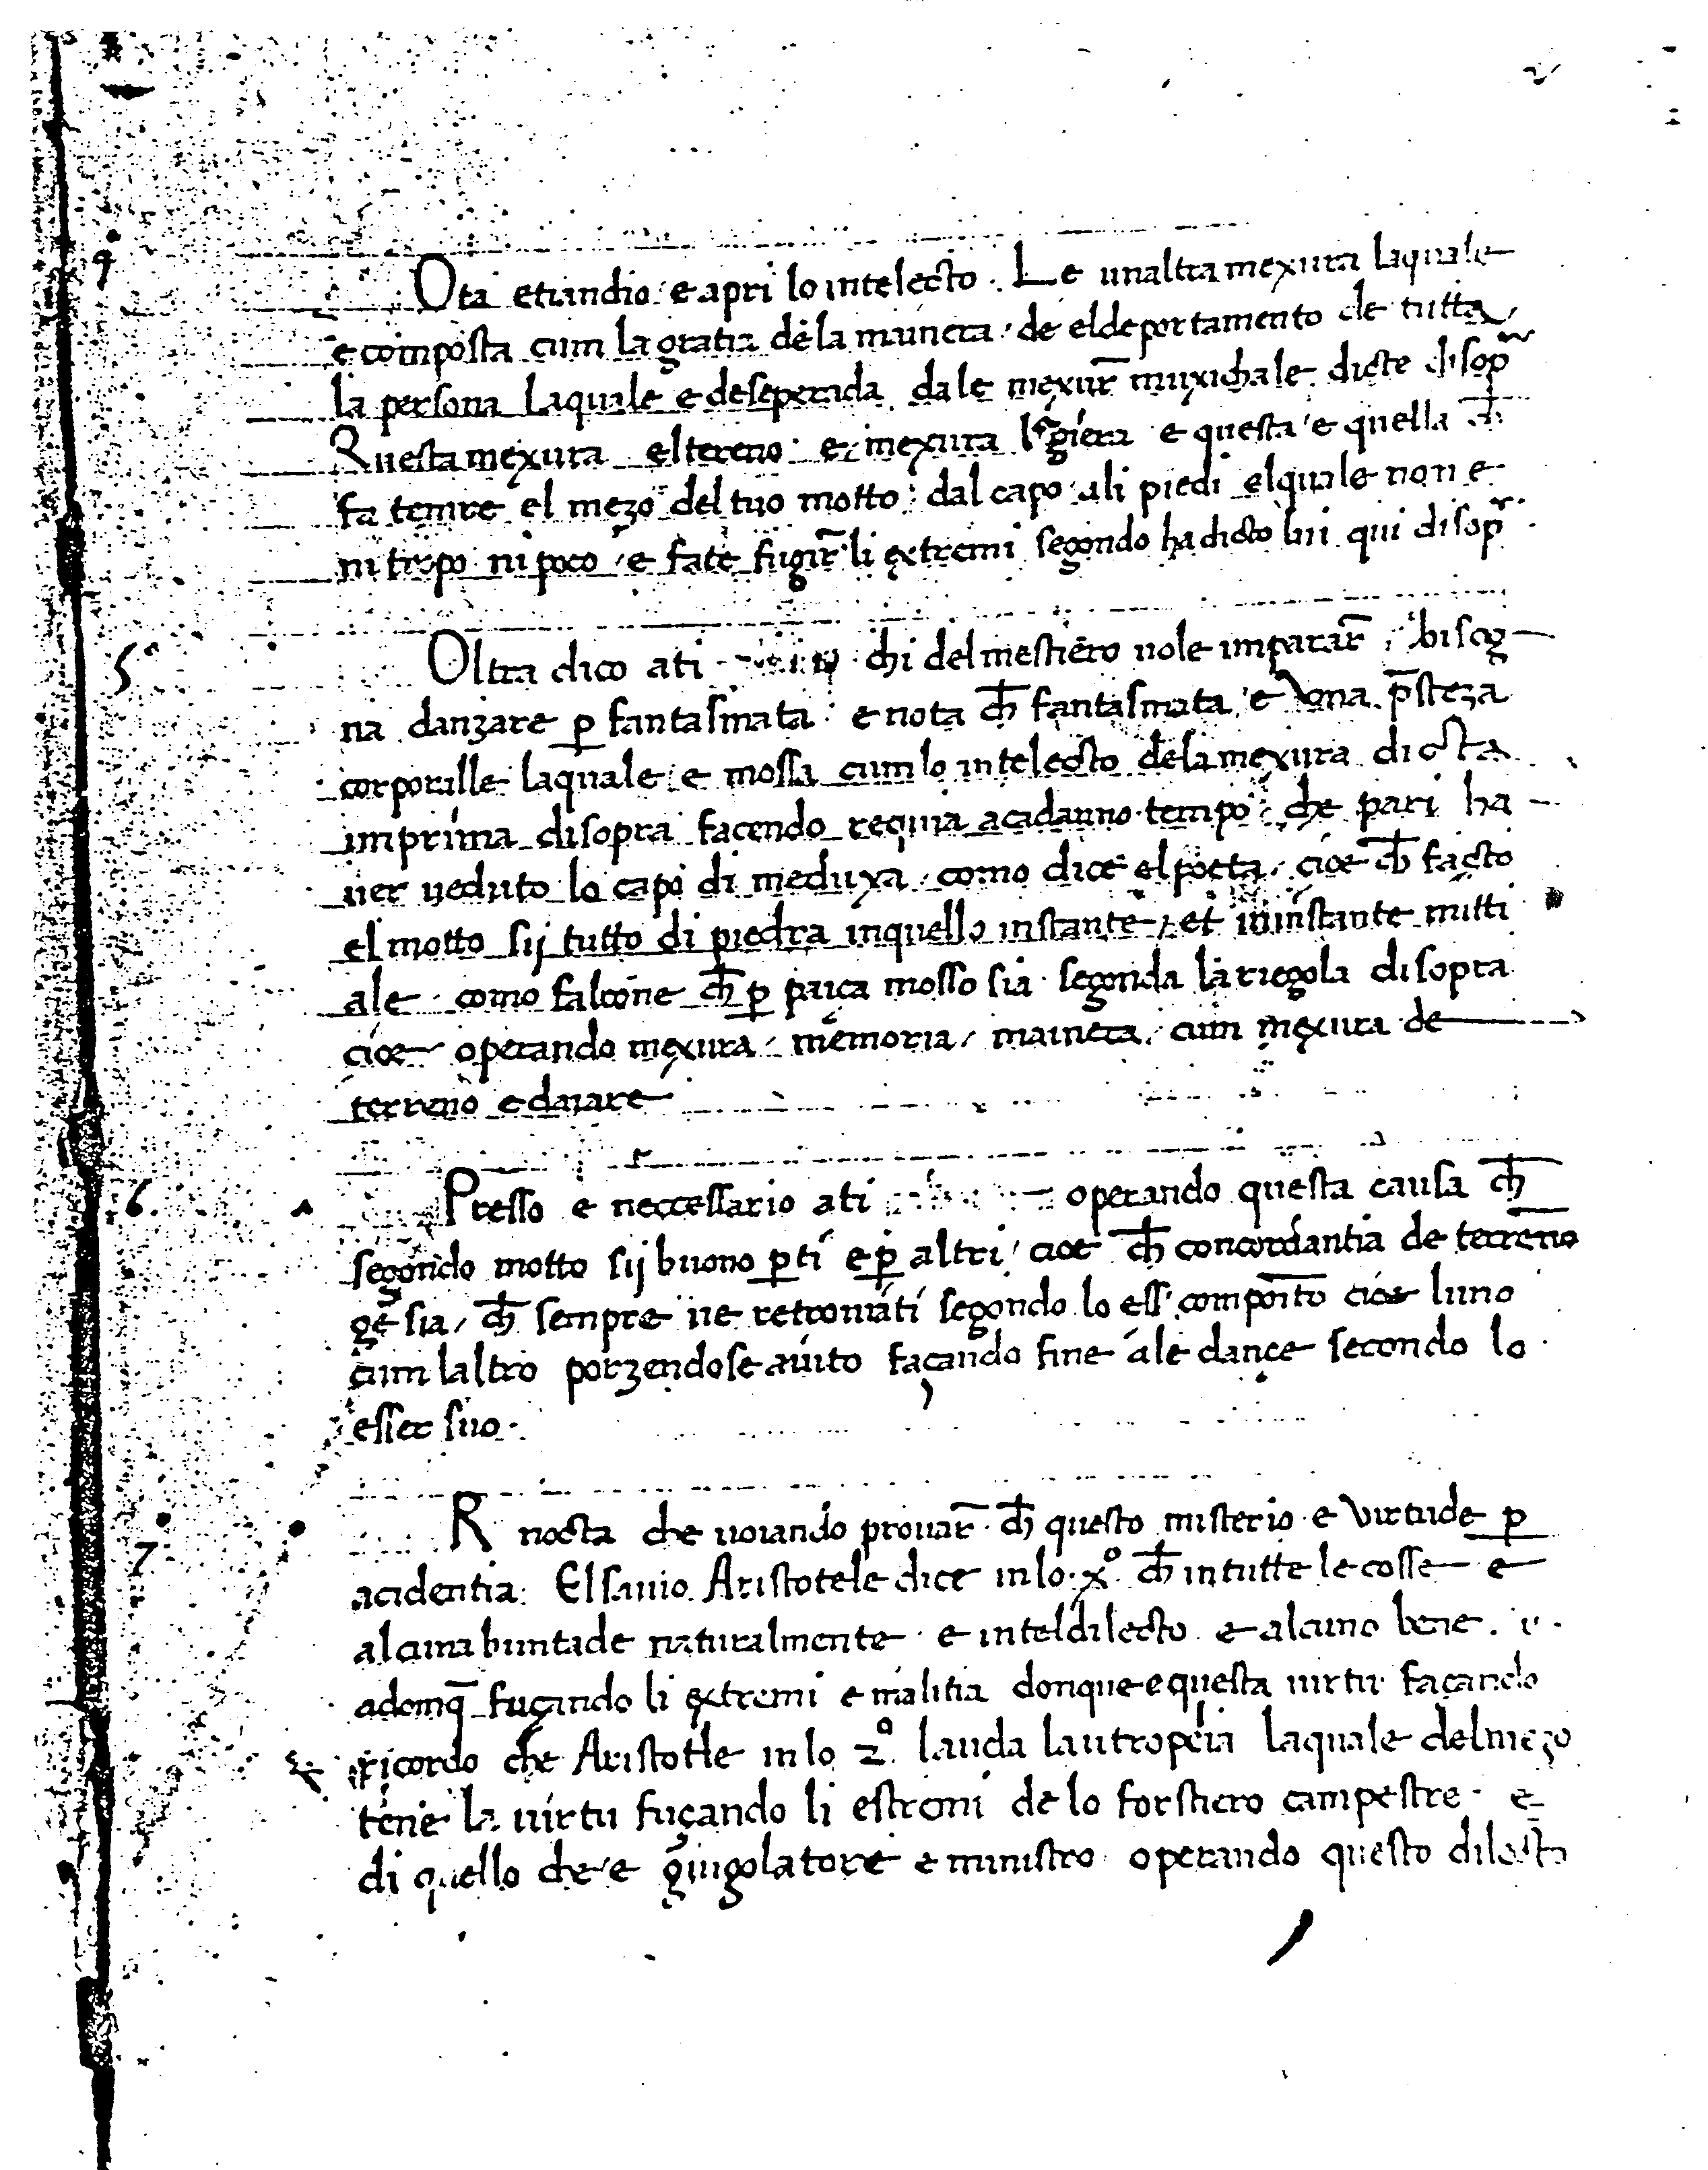 2
4
Ota etiandio e apri lo intelecto. Le unaltra mexura laquale
e composta cum la gratia de la mainera de el deportamento de tutta
la persona laquale e deseperada dale mexur̄ muxichale dicte di sop̃
Questa mexura el tereno e mexura legiera e questa e quella ch̄
fa tenire el mezo del tuo motto dal capo ali piedi elquale non e
ni tropo ni poco e fate fugir̄ li extremi segondo ha dicto lui qui di sop̃
5
Oltra dico ati chi del mestiero uole imparar̄ bisog
na danzare ꝑ fantasmata e nota ch̄ fantasmata e Una p̄steza
corporalle laquale e mossa cum lo intelecto dela mexura dicta
imprima disopra facendo requia acadauno tempo che pari ha
uer ueduto lo capo di meduxa como dice el poeta cioe ch̄ facto
el motto sij tutto di piedra inquello instante et in instante mitti
ale como falcone ch̄ ꝑ paica mosso sia segonda la riegola disopra
cioe operando mexura memoria mainera cum mexura de
terreno e daiare
6.
Presso e neccessario ati operando questa causa ch̄
segondo motto sij buono ꝑ ti e ꝑ altri cioe ch̄ concordantia de terreno
ge sia ch̄ sempre ue retrouiati segondo lo ess' compoīto cioe luno
cum laltro porzendose aiuto façando fine ale dançe secondo lo
esser suo.
7
R nocta che uoiando prouar̄ ch̄ questo misterio e Virtude ꝑ
acidentia. El sauio Aristotele dice in lo .x.º ch̄ in tutte le cosse e
alcuna buntade naturalmente e intel dilecto e alcuno bene.
adonq̄ fuçando li extremi e malitia donque e questa uirtu façando
ricordo che Aristotle in lo 2.º lauda lautropeia laquale del mezo
tene la uirtu fuçando li estremi de lo forstiero campestre e
di quello che e giugolatore e ministro operando questo dilecto